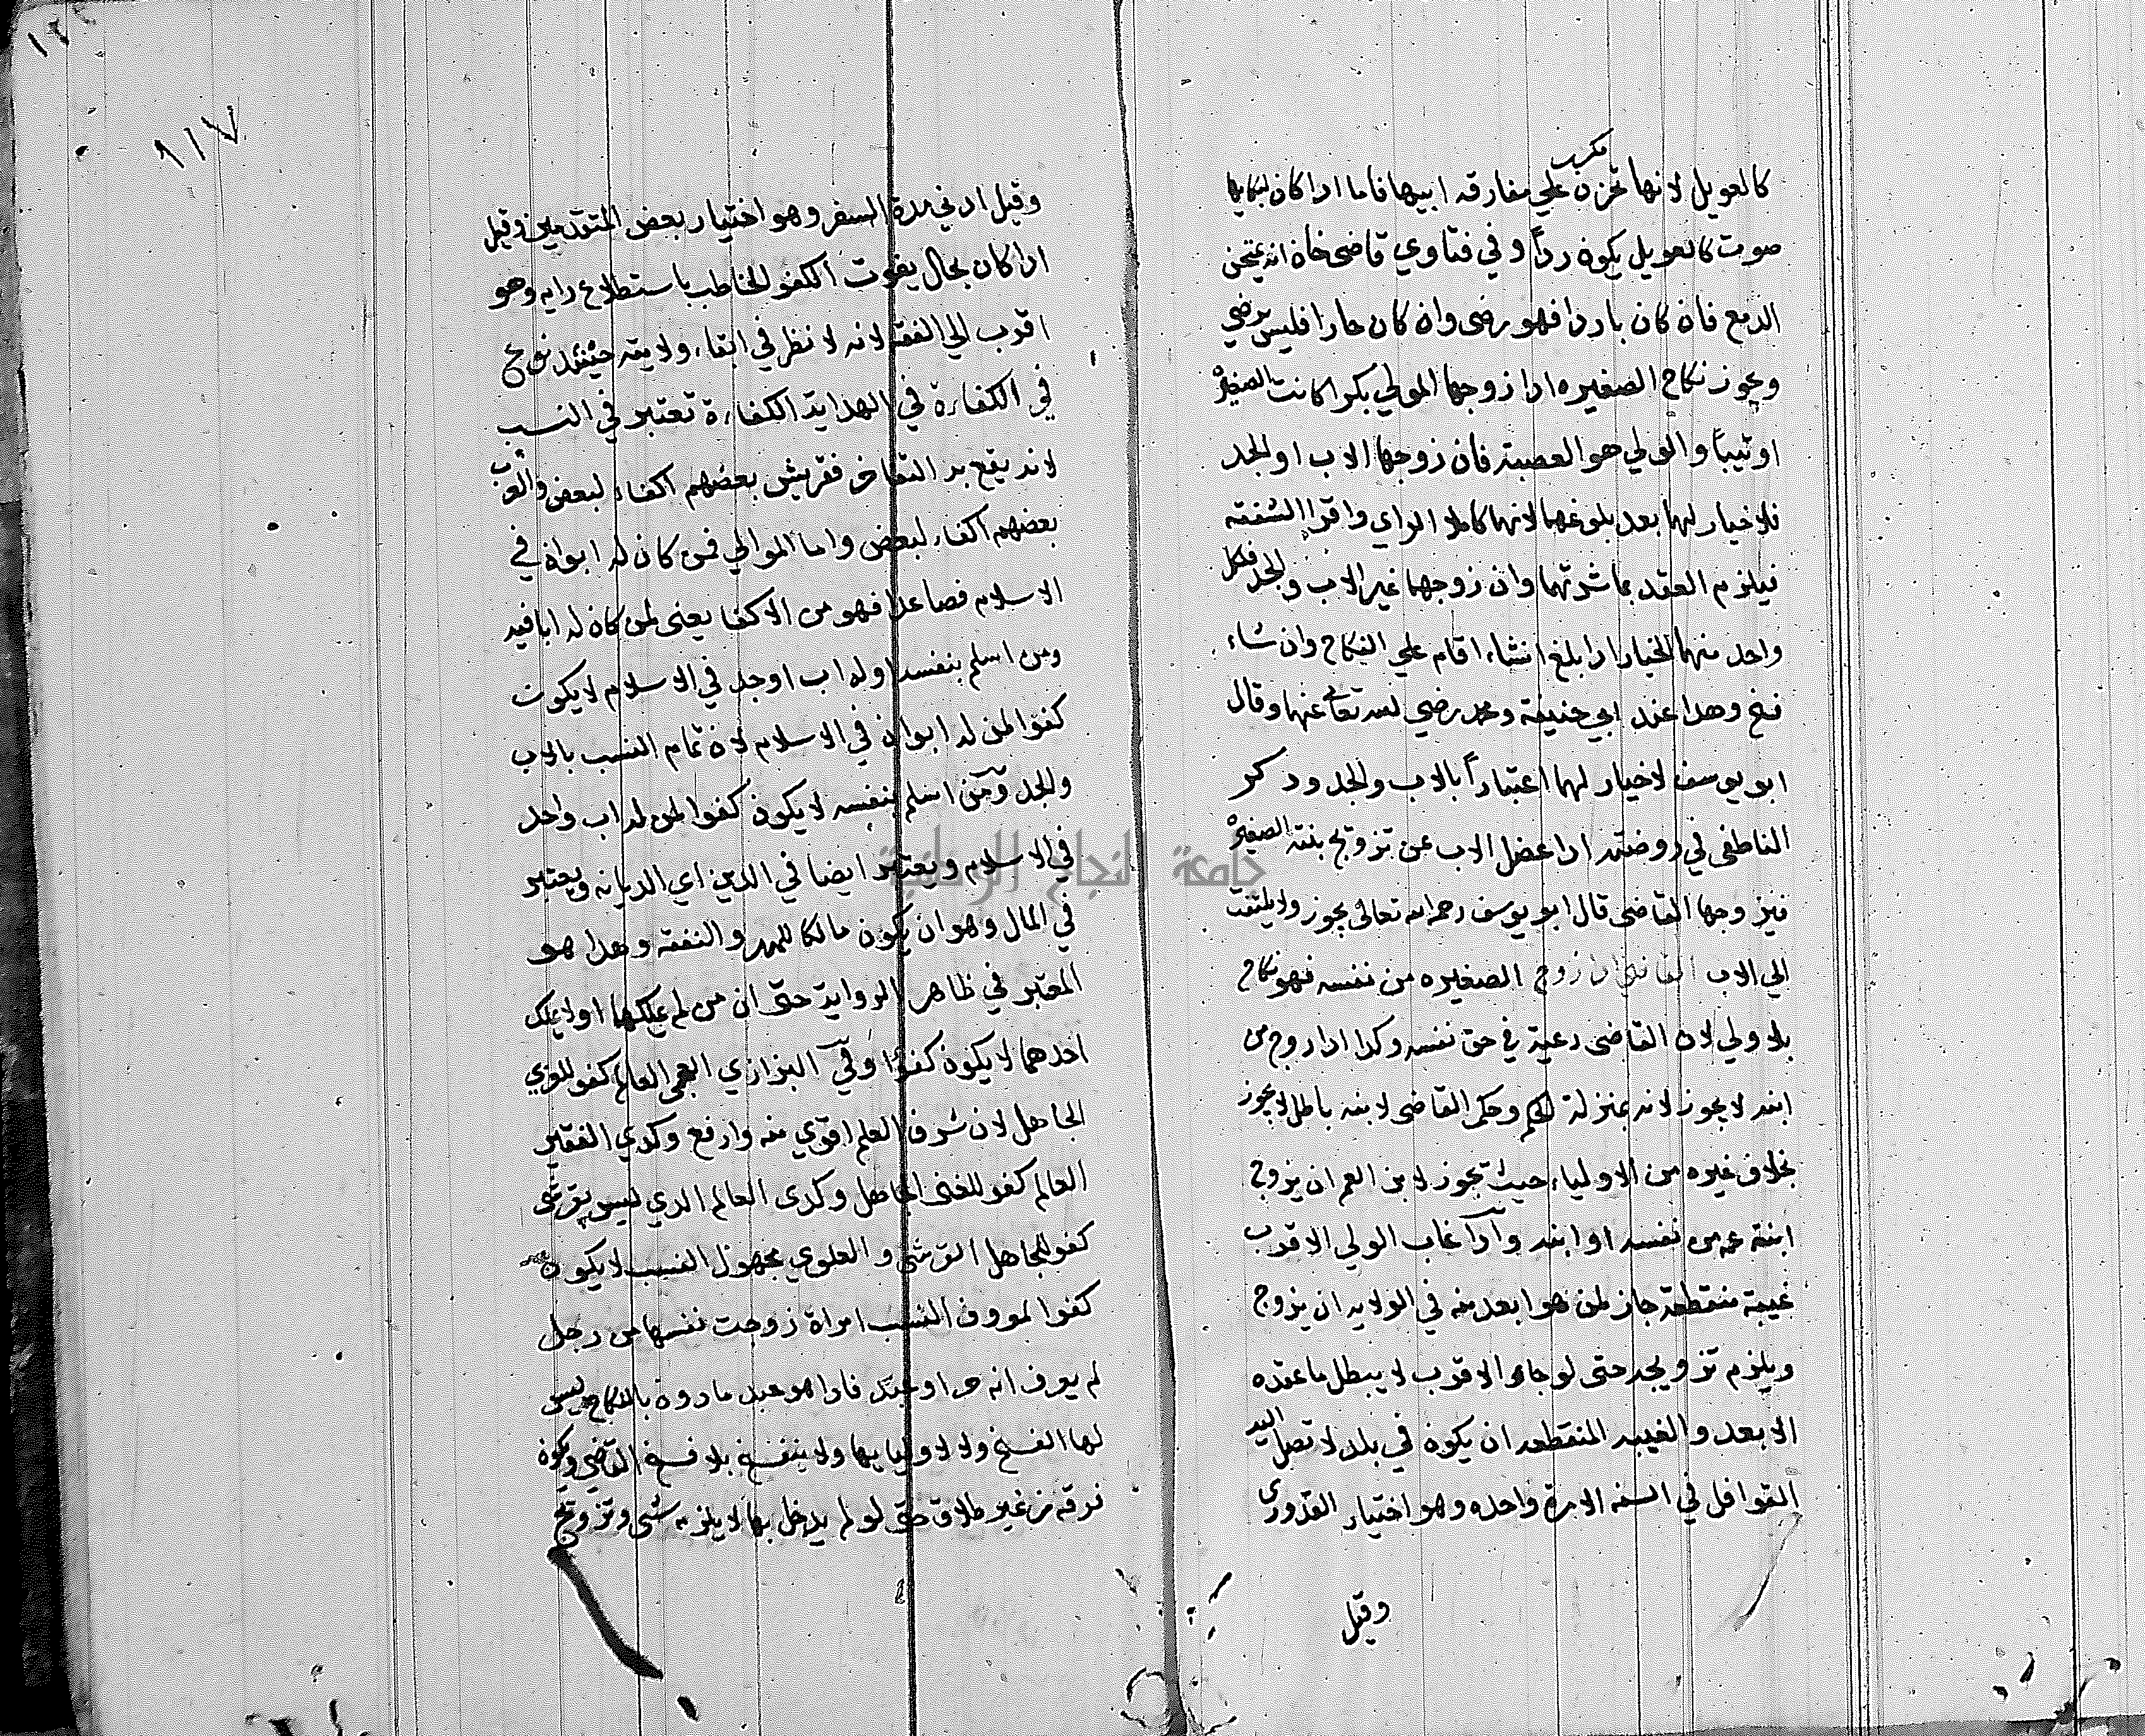 مكرر
كالعويل لانها تحزن علي مفارقه ابيها فاما ادا كان لبكايها
صوت كالعويل يكون رداً وفي فتاوي قاضى خان انه يمتحن
الدمع فان كان باردا فهو رضى وان كان حارا فليس برضي
ويجوز نكاح الصغيره ادا زوجها المولي بكرا كانت الصغيرة
او ثيباً والولي هو العصبة فان زوجها الاب او الجد
فلا خيار لهما بعد بلوغهما لانهما كاملا الراي وافرا الشفقه
فيلزم العقد بمباشرتهما وان زوجهما غير الاب والجد فلكل
واحد منهما الخيار ادا بلغ انشاء اقام علي النكاح وان شاء
فسخ وهدا عند ابي حنيفة ومحمد رضي الله تعالى عنهما وقال
ابو يوسف لا خيار لهما اعتباراً بالاب والجد ودكر
الناطفى في روضته ادا عضل الاب عن تزويج بنته الصغيرة
فيزوجها القاضى قال ابو يوسف رحمه الله تعالى يجوز ولا يلتفت
الي الاب القاضي ادا زوج الصغيره من نفسه فهو نكاح
بلا ولي لان القاضى رعية في حق نفسه وكدا ادا زوج من
ابنه لا يجوز لانه بمنزلة الحكم وحكم القاضى لابنه باطل لا يجوز
بخلاف غيره من الاولياء حيث يجوز لابن العم ان يزوج
ابنة عمه من نفسه او ابنه وادا غاب الولي الاقرب
غيبة منقطعة جاز لمن هو ابعد منه في الولايه ان يزوج
ويلزم تزويجه حتى لو جاء الاقرب لا يبطل ما عقده
الابعد والغيبه المنقطعه ان يكون في بلد لا تصل اليه
القوافل في السنه الا مرة واحده وهو اختيار القدوري
وقيل
١١٧
وقيل ادني مدة السفر وهو اختيار بعض المتقدمين وقيل
ادا كان بحال يفوت الكفو الخاطب باستطلاع رايه وهو
اقرب الي الفقه لانه لا نظر في ابقاء ولايته حينئد نوع
في الكفاءة في الهداية الكفاءة تعتبر في النسب
لانه يقع به التفاخر فقريش بعضهم اكفاء لبعض والعرب
بعضهم اكفاء لبعض واما الموالي فمن كان له ابوان في
الاسلام فصاعدا فهو من الاكفا يعنى لمن كان له ابا فيه
ومن اسلم بنفسه او له اب اوجد في الاسلام لا يكون
كفوا لمن له ابوان في الاسلام لان تمام النسب بالاب
والجد ومن اسلم بنفسه لا يكون كفوا لمن له اب واحد
في الاسلام ويعتبر ايضا في الدين اي الديانه ويعتبر
في المال وهو ان يكون مالكا للمهر والنفقه وهدا هو
المعتبر في ظاهر الرواية حتى ان من لم يملكهما او لا يملك
احدهما لا يكون كفؤا وفي البزازي العجمى العالم كفو للعربي
الجاهل لان شرف العلم اقوي منه وارفع وكدي الفقير
العالم كفو للغنى الجاهل وكدى العالم الدي ليس بقرشى
كفو للجاهل القرشى والعلوي مجهول النسب لا يكون
كفوا لمعروف النسب امراة زوجت نفسها من رجل
لم يعرف انه حر او عبد فادا هو عبد مادون بالنكاح ليس
لها الفسخ ولا لاوليايها ولا ينفسخ بلا فسخ القاضي ويكون
فرقه من غير طلاق حتى لو لم يدخل بها لا يلزمه شى وتزويج
جامعة النجاح الوطنية